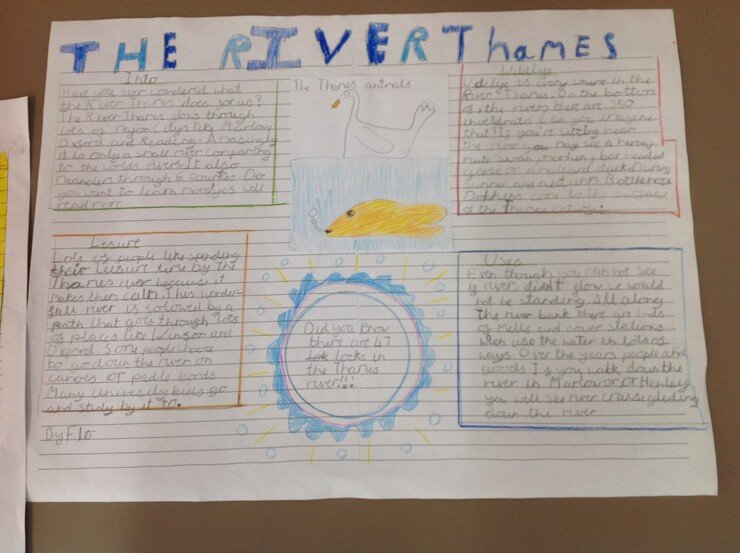 THE RIVER Thames
Into
Have you ever wondered what
the River Thames does for us?
The River Thames flows through
lots of major citys like Marlow,
Oxford and Reading. Amasingly
it is only a small river comparing
to the worlds rivers. It also
meanders through 6 counties. Do
you want to learn more? yes well
read more
The Thames animals
Wildlife
Wildlife is every where in the
River Thames. On the bottom
of the rivers there are 350
inverbrats. Can you imagine
that? If you're sitting near
the river you may see a heron,
mute swan, morhen, bar headed
geese or a mallard duck. During
Summer and auturm Bottlenose
Dolphins come to the surface
of the Thames
Lesure
Lots of people like spending
their lesure time by the
Thames river because it
makes them calm. This wonder-
full river is folowed by a
path that gots through lots
of places like Winsor and
Oxford. Some people have
to go down the river on
canoes or padle bords
Many University kids go
and study by it to.
By Flo
Did you know
there are 47
locks in
the Thames
river!!!
Uses
Even though you can not see
if river didn't flow we would
not be standing. All along
the river bank there are lots
of Mills and power stations
wich use the water in lots of
ways. Over the years people and
goods. If you walk down the
river in Marlow or Henley
you will see river cruise gliding
down the river